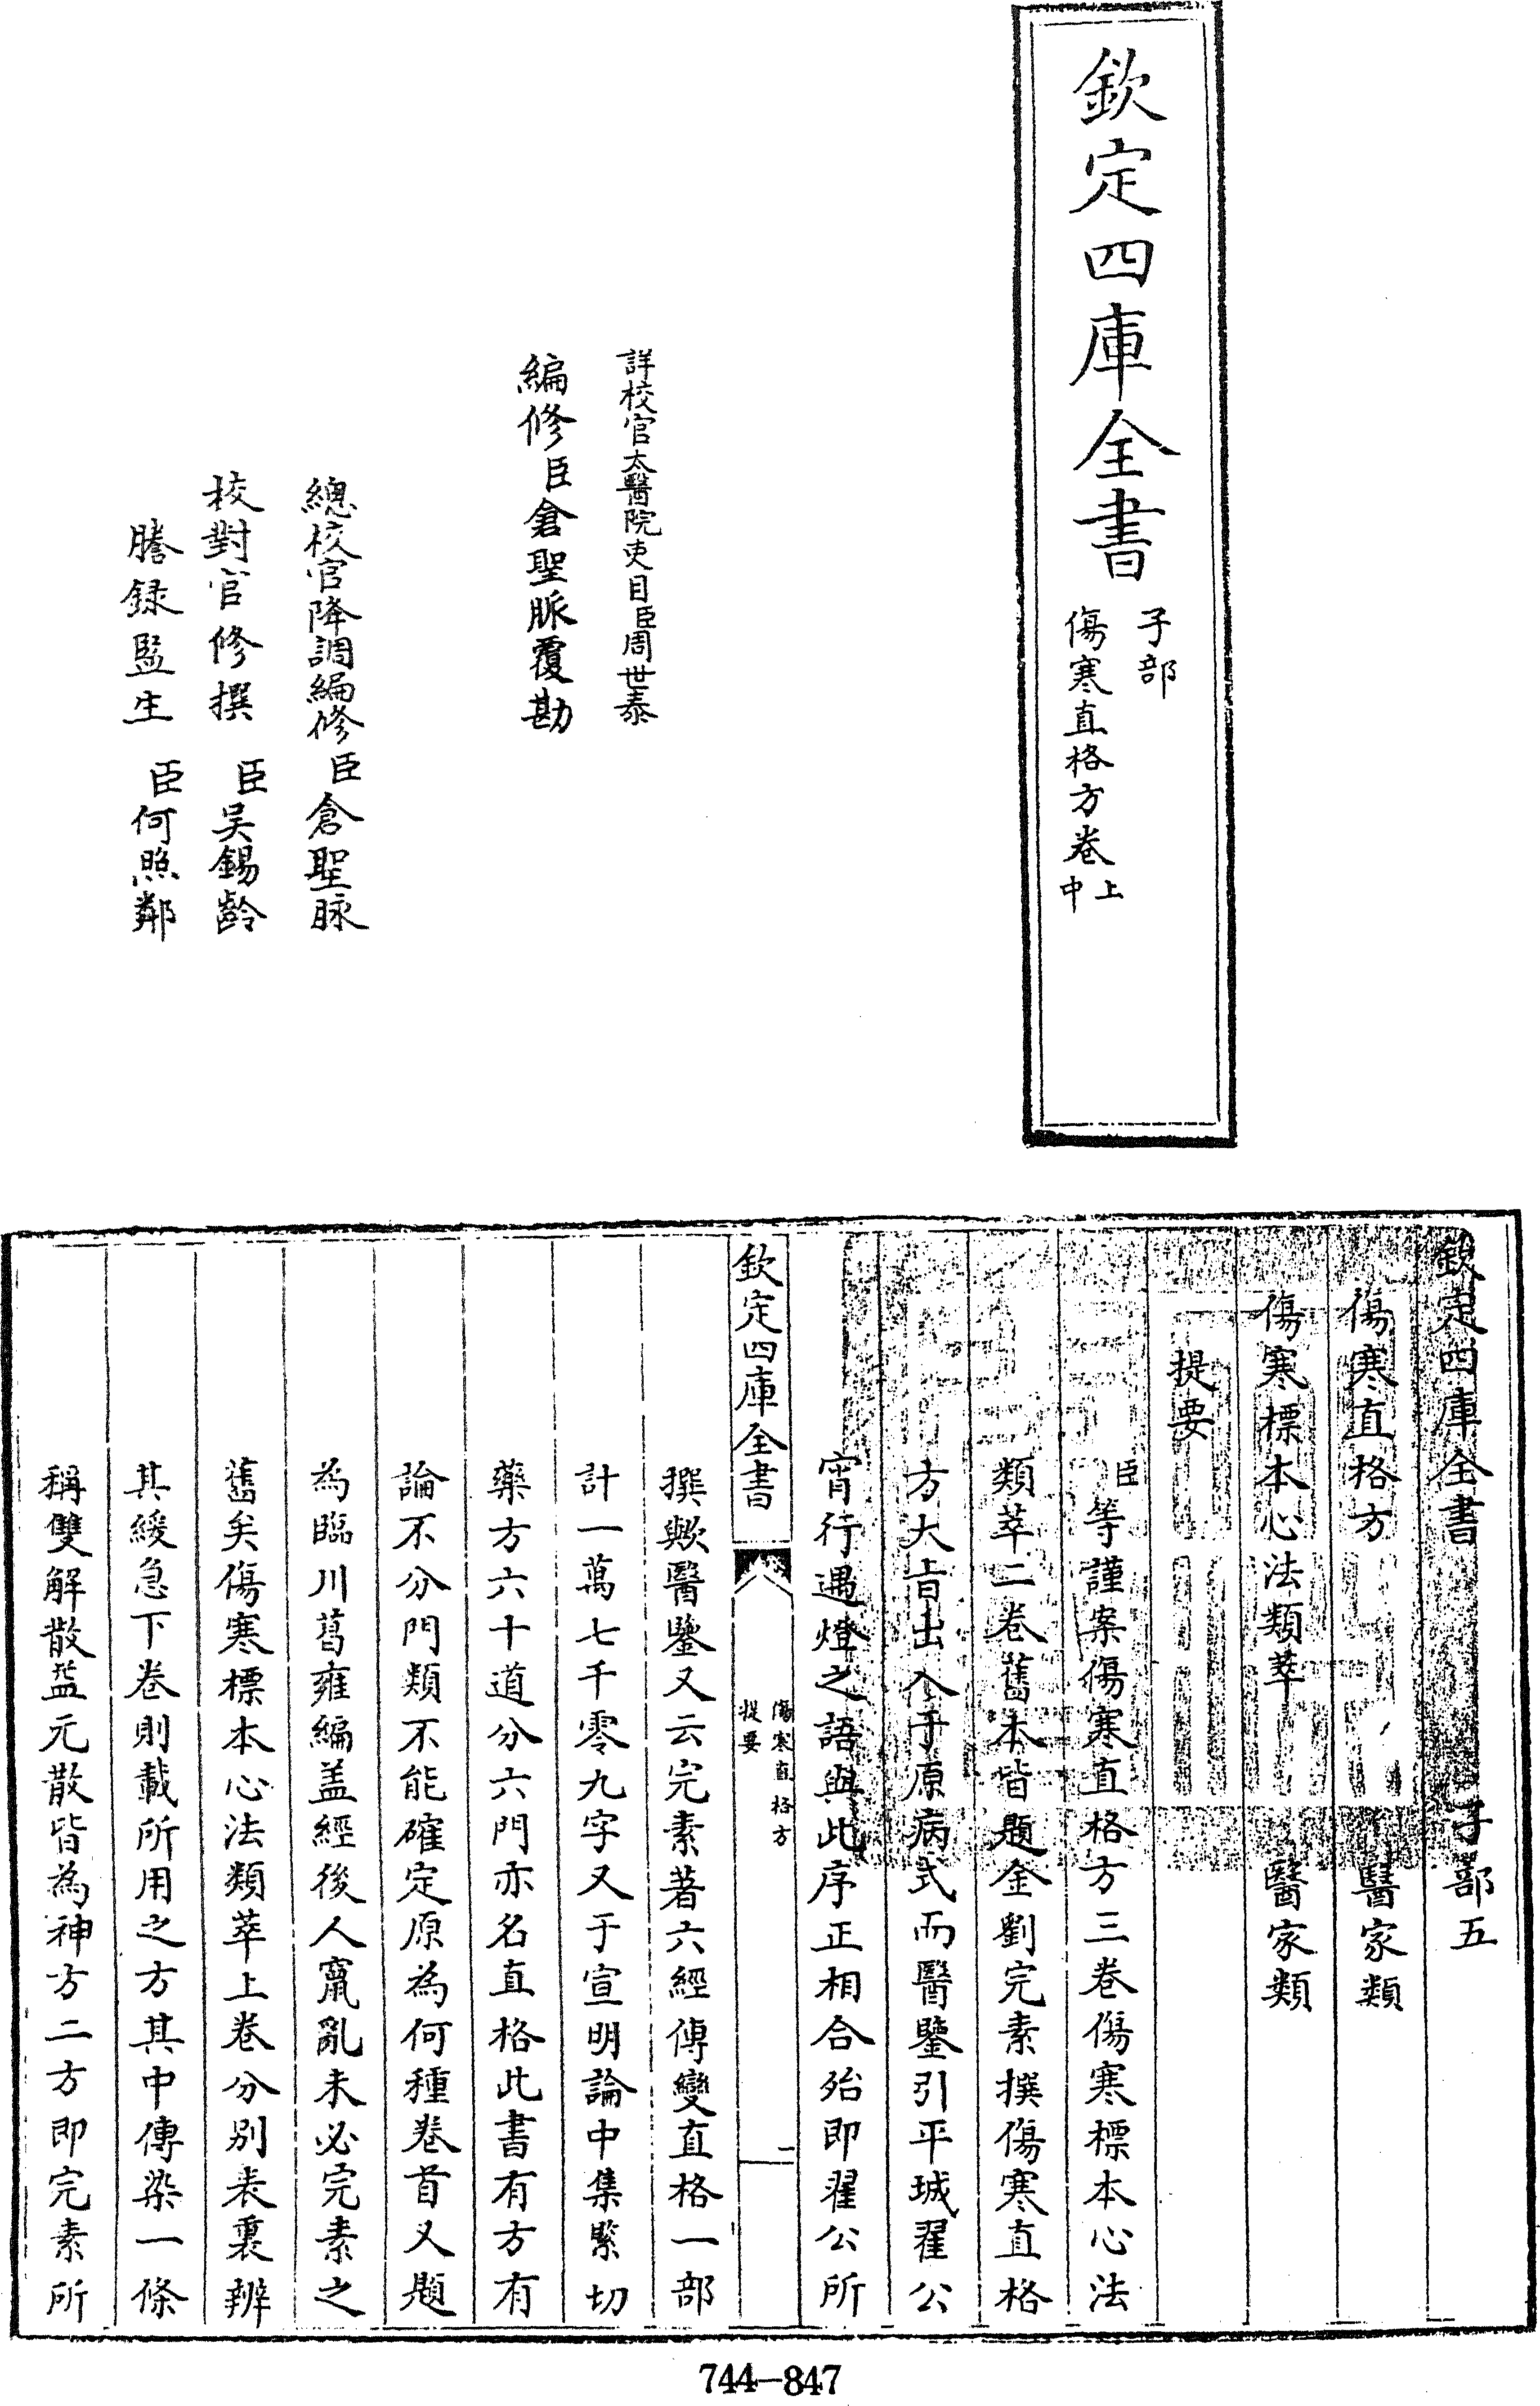 欽定四庫全書
子部
傷寒直格方卷上
中
詳校官太醫院吏目臣周世泰
編修臣倉聖脈覆勘
總校官降調編修臣倉聖脉
校對官修撰臣吳錫齡
謄録監生臣何照鄰
欽定四庫全書 子部五
傷寒直格方 醫家類
傷寒標本心法類萃 醫家類
提要
臣等謹案傷寒直格方三卷傷寒標本心法
類萃二卷舊本皆題金劉完素撰傷寒直格
方大旨出入于原病式而醫鑒引平城翟公
宵行遇燈之語與此序正相合殆即翟公所
欽定四庫全書
傷寒直格方
提要
一
撰歟醫鑒又云完素著六經傳變直格一部
計一萬七千零九字又于宣明論中集緊切
藥方六十道分六門亦名直格此書有方有
論不分門類不能確定原為何種卷首又題
為臨川葛雍編盖經後人竄亂未必完素之
舊矣傷寒標本心法類萃上卷分别表裏辨
其緩急下卷則載所用之方其中傳染一條
稱雙解散益元散皆為神方二方即完素所
744-847